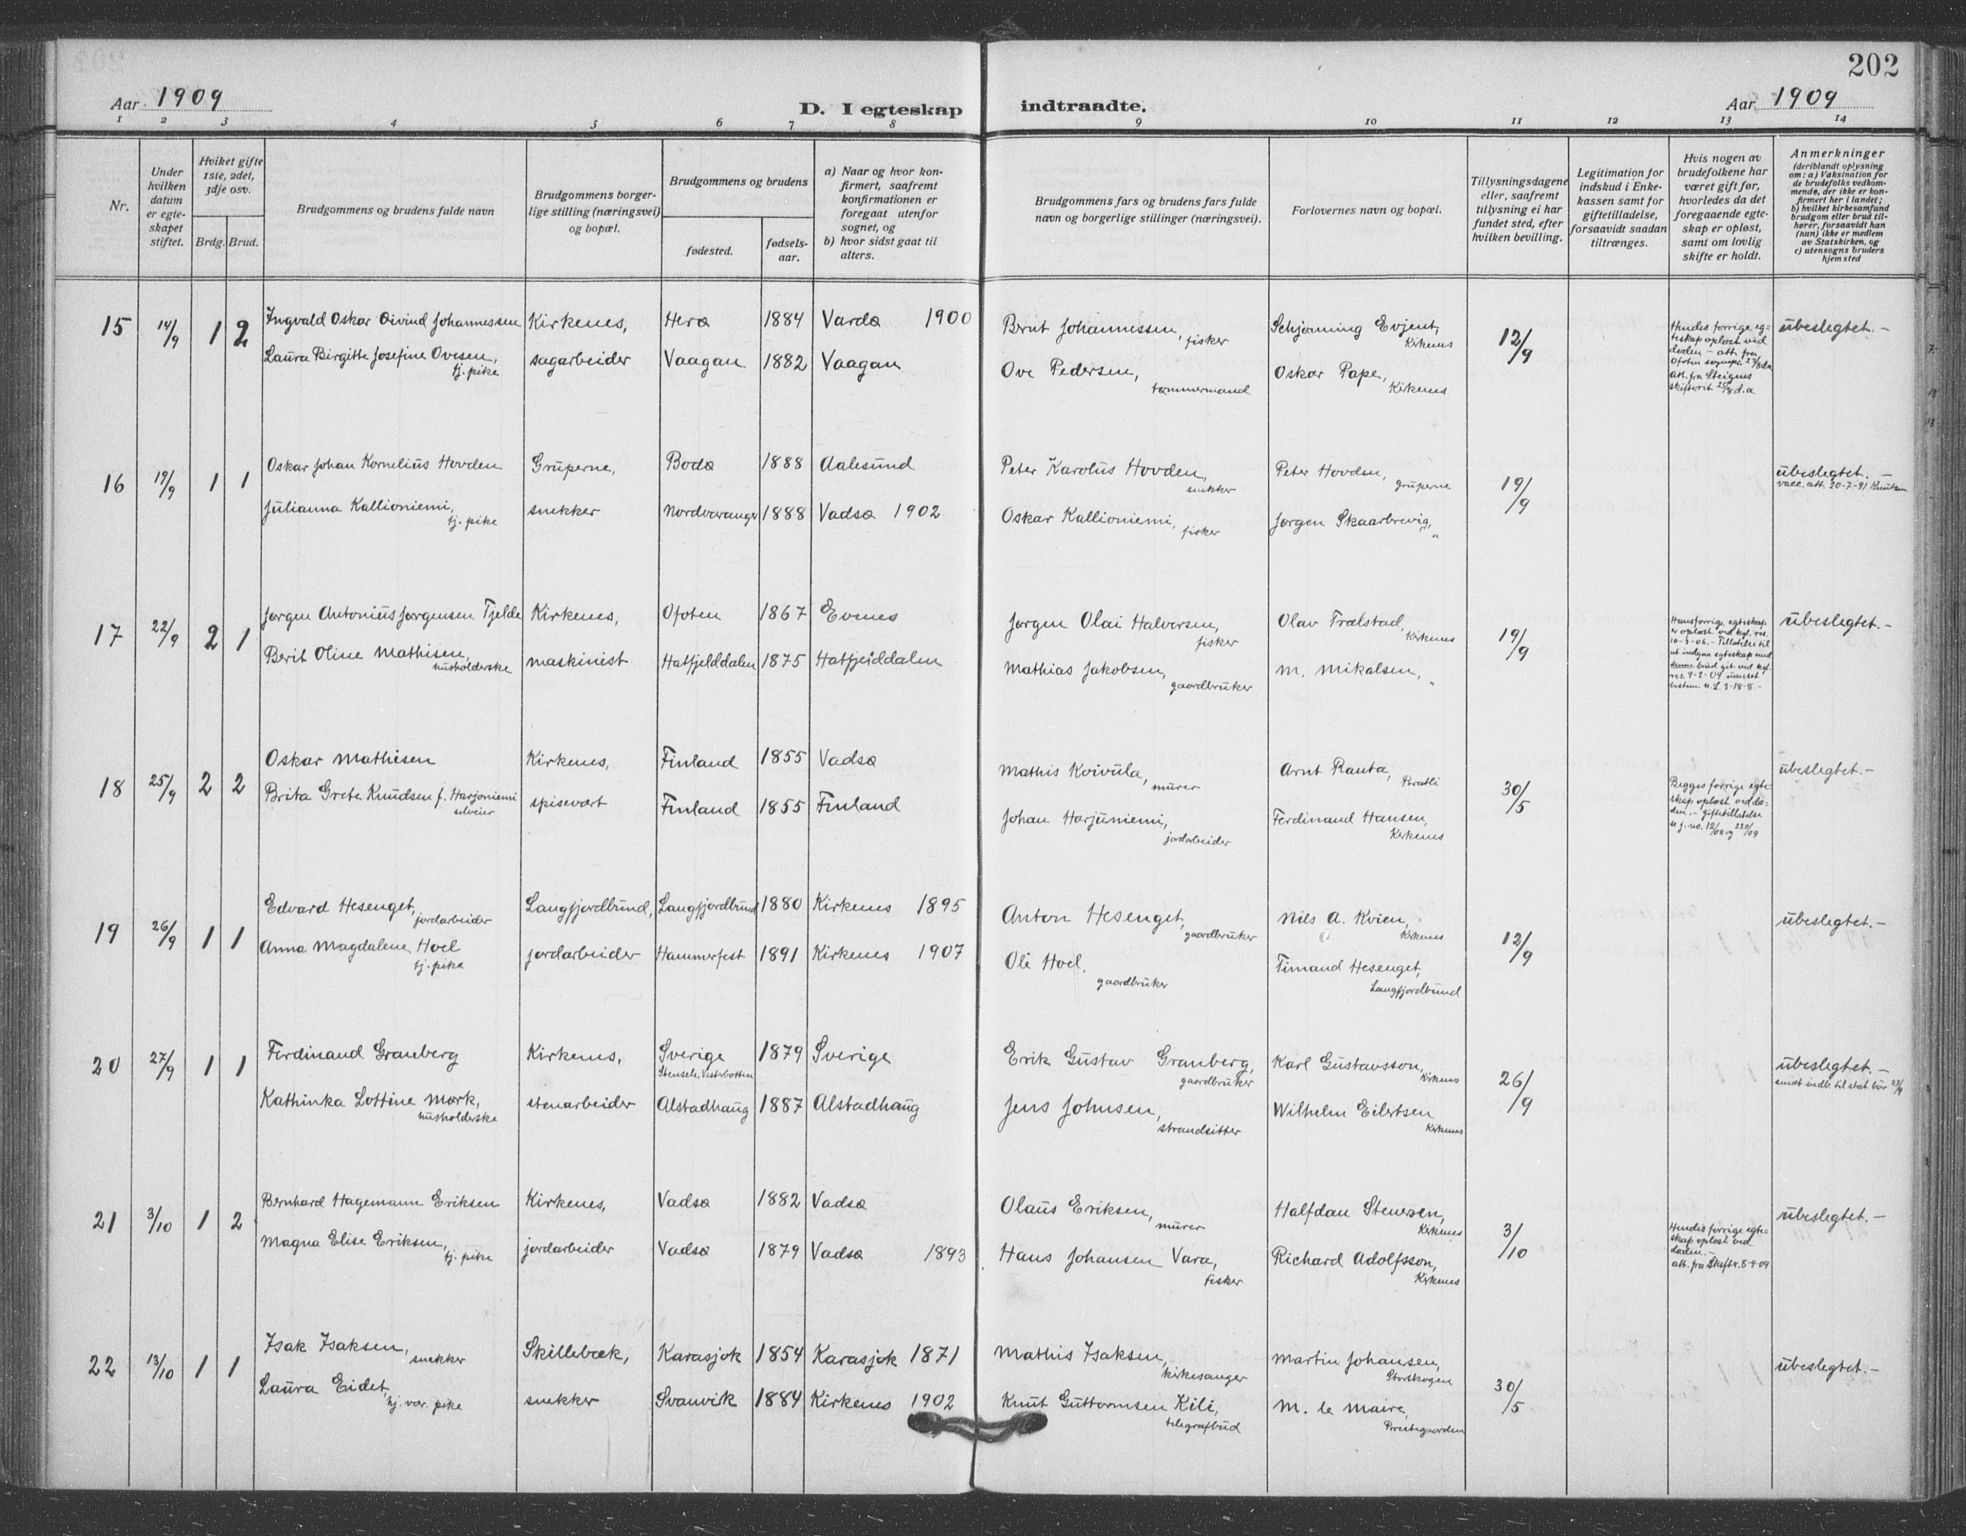 202
Aar 1909
D. I egteskap indtraadte.
Aar 1909
1 2 3 4 5 6 7 8 9 10 11 12 13 14
Nr.
Under hvilken datum er egteskapet stiftet.
Hviket gifte 1ste, 2det, 3dje osv.
Brdg. Brud.
Brudgommens og brudens fulde navn
Brudgommens borgerlige stilling (næringsvei) og bopæl.
Brudgommens og brudens
fødested.
fødselsaar.
a) Naar og hvor konfirmert, saafremt konfirmationen er foregaat utenfor sognet, og
b) hvor sidst gaat til alters.
Brudgommens fars og brudens fars fulde navn og borgerlige stillinger (næringsvei).
Forlovernes navn og bopæl.
Tillysningsdagene eller, saafremt tillysning ei har fundet sted, efter hvilken bevilling.
Legitimation for indskud i Enkekassen samt for giftetilladelse, forsaavidt saadan tiltrænges.
Hvis nogen av brudefolkene har været gift før, hvorledes da det foregaaende egteskap er opløst, samt om lovlig skifte er holdt.
Anmerkninger
(deriblandt oplysning om: a) Vaksination for de brudefolks vedkommende, der ikke er konfirmert her i landet; b) hvilket kirkesamfund brudgom eller brud tilhører, forsaavidt han (hun) ikke er medlem av Statskirken, og c) utensogns bruders hjemsted
15 14/9 1 2 Ingvald Oskar Øivind Johannessen Kirkenes, Herø 1884 Vardø 1900 Bernt Johannessen, fisker Schjønning Evjent, Kirkenes 12/9 ubeslegtet.-
Laura Birgitte Josefine Ovesen, tj. pike sagarbeider Vaagan 1882 Vaagan Ove Pedersen, tømmermand Oskar Pape, Kirkenes
Hendes forrige egteskap opløst ved døden - att. fra Ofoten sognepr. 23/8 d.a att. fra Steigens skifterit 25/8 d.a
16 19/9 1 1 Oskar Johan Kornelius Hovden Gruperne, Bodø 1888 Aalesund Peter Karolus Hovden, snekker Peter Hovden, gruperne 19/9 ubeslegtet.-
vacc. att. 20-7-91
Julianna Kallioniemi, tj. pike snekker Nordvaranger 1888 Vadsø 1902 Oskar Kallioniemi, fisker Jørgen Skaarbrevig, "
17 22/9 2 1 Jørgen Antonius Jørgensen Tjelde Kirkenes, Ofoten 1867 Evenes Jørgen Olai Halversen, fisker Olav Trælstad, Kirkenes 19/9 ubeslegtet.-
Berit Oline Mathisen, husholderske maskinist Hatfjelddalen 1875 Hatfjelddalen Mathias Jakobsen, gaardbruker M. Mikalsen, "
Hans forrige egteskap er opløst ved kgl. res. 10-3-06. - Tilladelse til at indgaa egteskap med denne brud git ved kgl. res. 9-2-09 uanset bestem. N.L. 3-18-8.-
18 25/9 2 2 Oskar Mathisen Kirkenes, Finland 1855 Vadsø Mathis Koivula, murer Arnt Ranta, 30/5 ubeslegtet.-
Brita Grete Knudsen f. Harjoniemi selveier spisevært Finland 1855 Finland Johan Harjuniemi, jordarbeider Ferdinand Hansen, Kirkenes
Begges forrige egteskap opløst ved døden.- giftetilladelse se j. no. 12/08 og 220/09
19 26/9 1 1 Edvard Hesenget, jordarbeider Langfjordbund, Langfjordbund 1880 Kirkenes 1895 Anton Hesenget, gaardbruker Nils A. Kvien, Kirkenes 12/9 ubeslegtet.-
Anna Magdalene Hoel tj. pike jordarbeider Hammerfest 1891 Kirkenes 1907 Ole Hoel, gaardbruker Timand Hesenget, Langfjordbund
20 27/9 1 1 Ferdinand Granberg Kirkenes, Sverige 1879 Sverige Erik Gustav Granberg, gaardbruker Karl Gustavsson, Kirkenes 26/9 ubeslegtet.-
Stensele, Vesterbotten sendt indb. til stat. bür 23/9
Kathinka Lottine Mørk, husholderske stenarbeider Alstadhaug 1887 Alstadhaug Jens Johnsen, strandsitter Wilhelm Eilertsen Kirkenes
21 3/10 1 2 Bernhard Hagemann Eriksen Kirkenes, Vadsø 1882 Vadsø Olaus Eriksen, murer Halfdan Stenersen, Kirkenes 3/10 ubeslegtet.-
Magna Elise Eriksen, tj. pike jordarbeider Vadsø 1879 Vadsø 1893 Hans Johansen Vara, fisker Richard Adolfsson, Kirkenes
Hendes forrige egteskap opløst ved døden.- att. fra Skifter. 5-9-09
22 13/10 1 1 Isak Isaksen, snekker Skillebæk, Karasjok 1854 Karasjok 1871 Mathis Isaksen, kirkesanger Martin Johansen, Storskogen 30/5 ubeslegtet.-
Laura Eidet, hj. vær. pike snekker Svanvik 1884 Kirkenes 1902 Knut Guttormsen Kili, telegrafbud M. le Maire, Prestegaarden